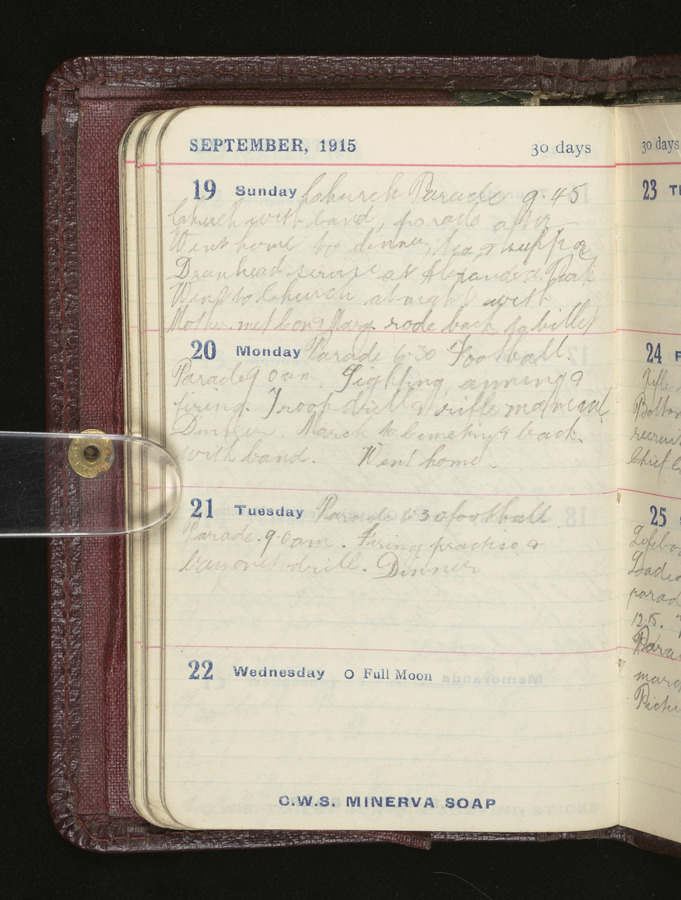 SEPTEMBER, 1915 30 days
19 Sunday Church Parade 9.45
Church with band, parade after
Went home to dinner, tea, & supper
Drumhead service at Alexandra Park
Went to Church at night with
Mother. met Con & Marg. rode back to billet
20 Monday Parade 6.30 Football.
Parade 9 0am. Sighting, aiming &
firing. Troop drill & rifle manual
Dinner. March to cemetery & back.
with band. Went home.
21 Tuesday Parade 6 30 football
Parade. 9.0am. Firing practise &
bayonet drill. Dinner
22 Wednesday O Full Moon
C.W.S. MINERVA SOAP
30 days
23
24
recruit
Chief
25
parad
12.15.
Para
marc
Pictu